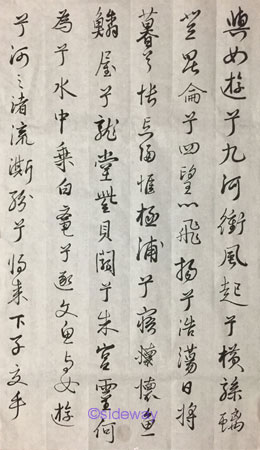 與女遊兮九河衝風起兮橫驂螭
登昆侖兮四望心飛揚兮浩蕩日將
暮兮悵忘歸惟極浦兮寤懷懷魚
鱗屋兮龍堂紫貝闕兮朱宮靈何
為兮水中乘白黿兮逐文魚与女遊
兮河之渚流澌紛兮将来下子交手
©sideway